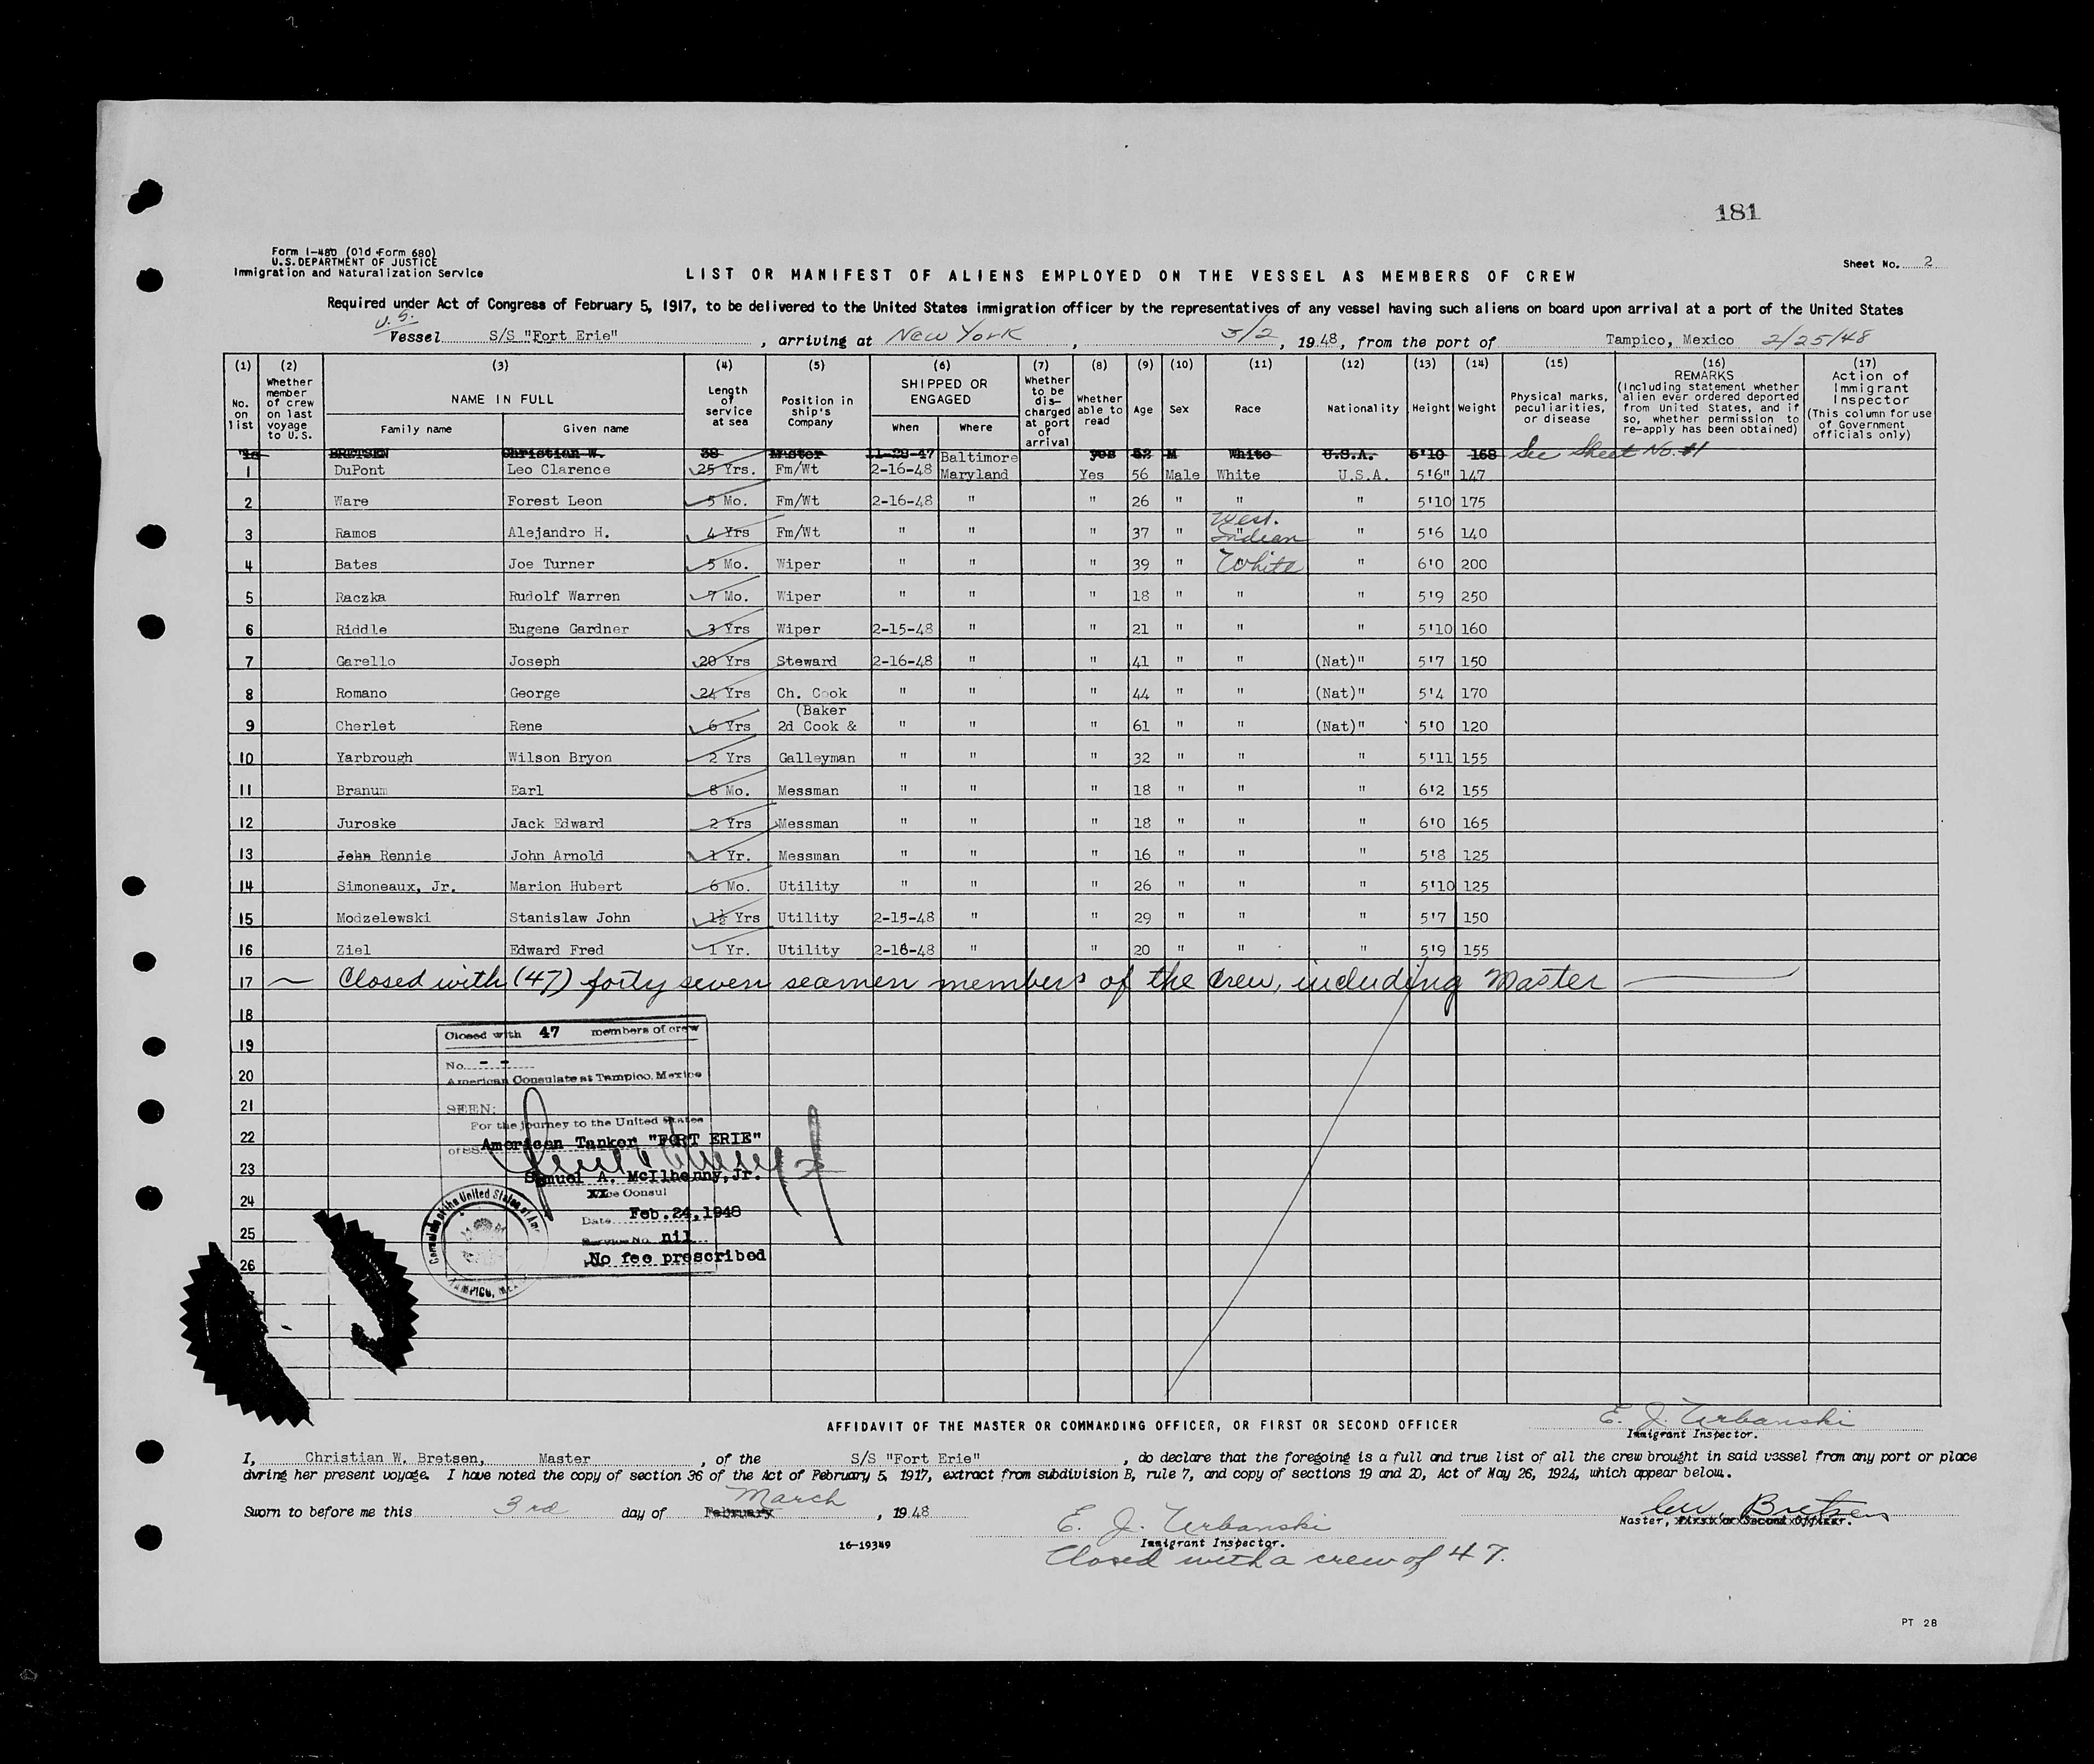 181
Form I-480 (Old Form 680)
U.S. DEPARTMENT OF JUSTICE
Immigration and Naturalization Service
LIST OR MANIFEST OF ALIENS EMPLOYED ON THE VESSEL AS MEMBERS OF CREW
Sheet No. 2
Required under Act of Congress of February 5, 1917, to be delivered to the United States immigration officer by the representatives of any vessel having such aliens on board upon arrival at a port of the United States
U.S.
Vessel S/S "Fort Erie", arriving at New York, 3/2, 1948, from the port of Tampico, Mexico 2/25/48
(1) No. on list
(2) Whether member of crew on last voyage to U.S.
(3) NAME IN FULL Family name Given name
(4) Length of service at sea
(5) Position in ship's Company
(6) SHIPPED OR ENGAGED When Where
(7) Whether to be discharged at port of arrival
(8) Whether able to read
(9) Age
(10) Sex
(11) Race
(12) Nationality
(13) Height
(14) Weight
(15) Physical marks, peculiarities, or disease
(16) REMARKS (Including statement whether alien ever ordered deported from United States, and if so, whether permission to re-apply has been obtained)
(17) Action of Immigrant Inspector (This column for use of Government officials only)
BRETSEN Christian W. 38 Master 11-28-47 Baltimore yes 52 M White U.S.A. 5'10 168 See Sheet No. #1
1 DuPont Leo Clarence 25 Yrs. Fm/Wt 2-16-48 Maryland Yes 56 Male White U.S.A. 5'6" 147
2 Ware Forest Leon 5 Mo. Fm/Wt 2-16-48 " " 26 " " " 5'10 175
3 Ramos Alejandro H. 4 Yrs Fm/Wt " " " 37 " West. Indian " 5'6 140
4 Bates Joe Turner 5 Mo. Wiper " " " 39 " White " 6'0 200
5 Raczka Rudolf Warren 7 Mo. Wiper " " " 18 " " " 5'9 250
6 Riddle Eugene Gardner 3 Yrs Wiper 2-15-48 " " 21 " " " 5'10 160
7 Garello Joseph 20 Yrs Steward 2-16-48 " " 41 " " (Nat)" 5'7 150
8 Romano George 24 Yrs Ch. Cook " " " 44 " " (Nat)" 5'4 170
(Baker
9 Cherlet Rene 6 Yrs 2d Cook & " " " 61 " " (Nat)" 5'0 120
10 Yarbrough Wilson Bryon 2 Yrs Galleyman " " " 32 " " " 5'11 155
11 Branum Earl 8 Mo. Messman " " " 18 " " " 6'2 155
12 Juroske Jack Edward 2 Yrs Messman " " " 18 " " " 6'0 165
13 John Rennie John Arnold 1 Yr. Messman " " " 16 " " " 5'8 125
14 Simoneaux, Jr. Marion Hubert 6 Mo. Utility " " " 26 " " " 5'10 125
15 Modzelewski Stanislaw John 1½ Yrs Utility 2-15-48 " " 29 " " " 5'7 150
16 Ziel Edward Fred 1 Yr. Utility 2-16-48 " " 20 " " " 5'9 155
17 Closed with (47) forty seven seamen members of the crew, including Master
18
19
20
21
22
23
24
25
26
Closed with 47 members of crew
No. - -
American Consulate at Tampico, Mexico
SEEN:
For the journey to the United States
of SS. American Tanker "FORT ERIE"
Samuel A. McIlhenny, Jr.
Vice Consul
Date Feb. 24, 1948
Service No. nil
No fee prescribed
Consulate of the United States of
TAMPICO, MEX
AFFIDAVIT OF THE MASTER OR COMMANDING OFFICER, OR FIRST OR SECOND OFFICER
E. J. Urbanski
Immigrant Inspector.
I, Christian W. Bretsen, Master, of the S/S "Fort Erie", do declare that the foregoing is a full and true list of all the crew brought in said vessel from any port or place
during her present voyage. I have noted the copy of section 36 of the Act of February 5, 1917, extract from subdivision B, rule 7, and copy of sections 19 and 20, Act of May 26, 1924, which appear below.
March
Sworn to before me this 3rd day of February, 1948
C.W. Bretsen
Master, First or Second Officer.
E. J. Urbanski
Immigrant Inspector.
16-19349
Closed with a crew of 47.
PT 28